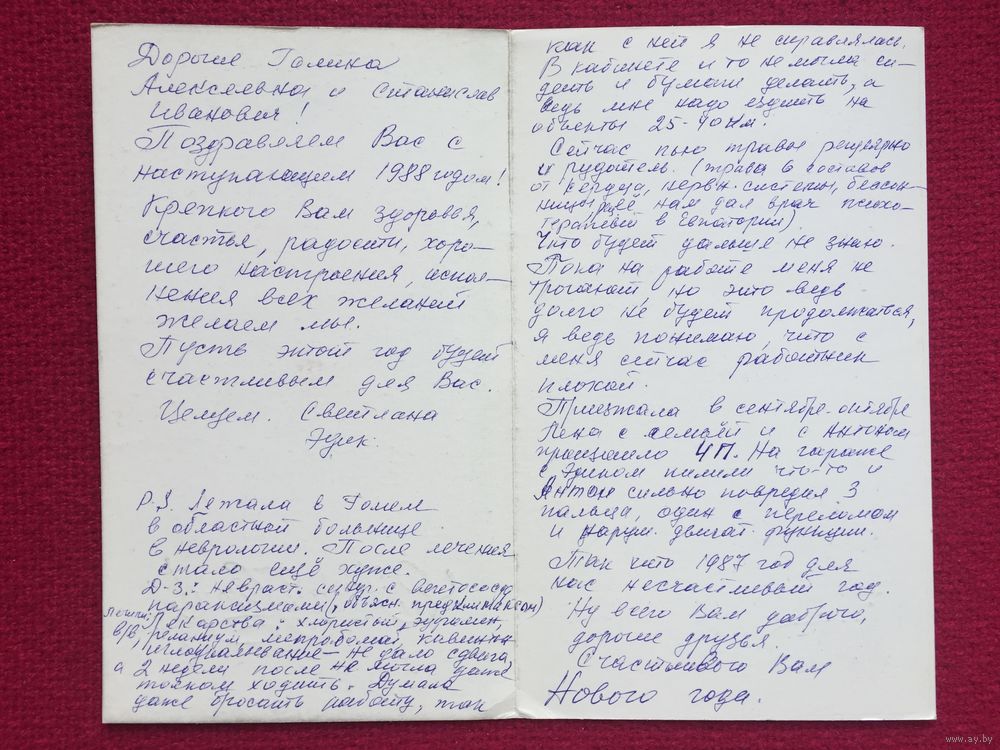 Дорогие Галина
Алексеевна и Станислав
Иванович!
Поздравляем Вас с
наступающим 1988 годом!
Крепкого Вам здоровья,
счастья, радости, хоро-
шего настроения, испол-
нения всех желаний
желаем мы.
Пусть этот год будет
счастливым для Вас.
Целуем. Светлана
Эдик.
P.S. Лежала в Гомеле
в областной больнице
в неврологии. После лечения
стало ещё хуже.
Д-з:Невраст. синдр. с вегетососуд
параксизмами (, объясн. предклимаксом)
Лекарства: хлористый, эуфиллин,
в/в, реланиум, мепробомат,
иглоукалывание - не дало сдвига,
а 2 недели после не могла даже
толком ходить. Думала
даже бросать работу, так
как с ней я не справлялась.
В кабинете и то не могла си-
деть и бумаги делать, а
ведь мне надо ездить на
объекты 25-40 км.
Сейчас пью травы регулярно
и рудотель. (трава в составе
от сердца, нервн. системы, бессон-
ницы, рецепт нам дал врач психо-
терапевт в Евпатории)
Что будет дальше не знаю.
Пока на работе меня не
трогают, но это ведь
долго не будет продолжаться,
я ведь понимаю, что с
меня сейчас работник
плохой.
Приезжала в сентябре-октябре
Лена с семьёй и с Антоном
произошло ЧП. На гараже
с Эдиком пилили что-то и
Антон сильно повредил 3
пальца, один с переломом
и наруш. двигат. функции.
Так что 1987 год для
нас несчастливый год.
Ну всего Вам доброго,
дорогие друзья
Счастливого Вам
Нового года.
www.ay.by